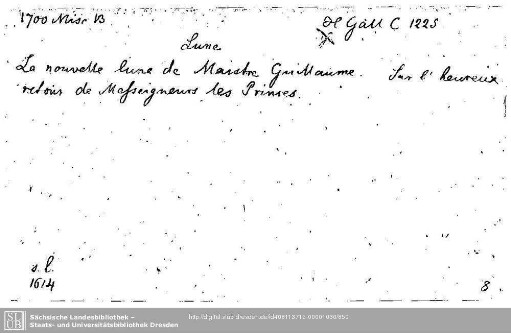 1700 Misc B
H Gall C 1225
Lune
La nouvelle lune de Maistre Guillaume. Sur l'heureux
retour de Messeigneurs les Princes.
s. l.
1614
8
Sächsische Landesbibliothek –
Staats- und Universitätsbibliothek Dresden